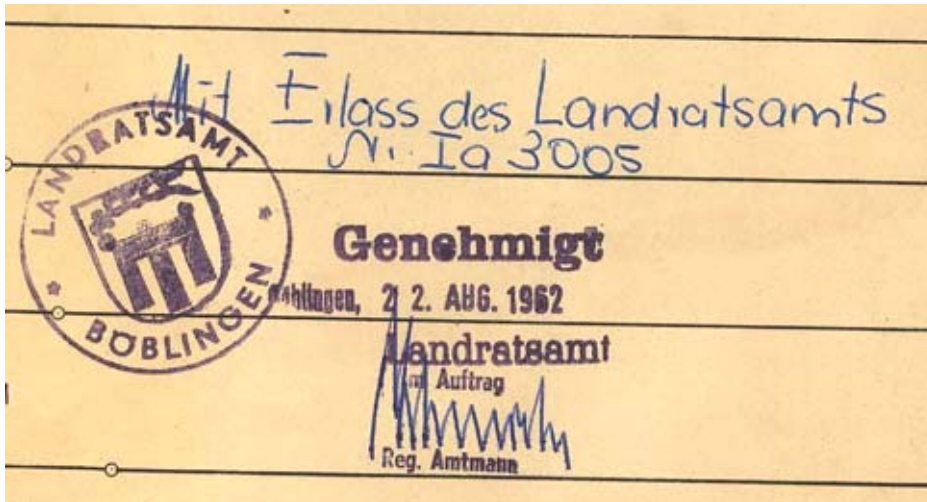 Mit Erlass des Landratsamts
Nr. Ia 3005
LANDRATSAMT
BÖBLINGEN
Genehmigt
Böblingen, 2 2. AUG. 1962
Landratsamt
Im Auftrag
Reg. Amtmann